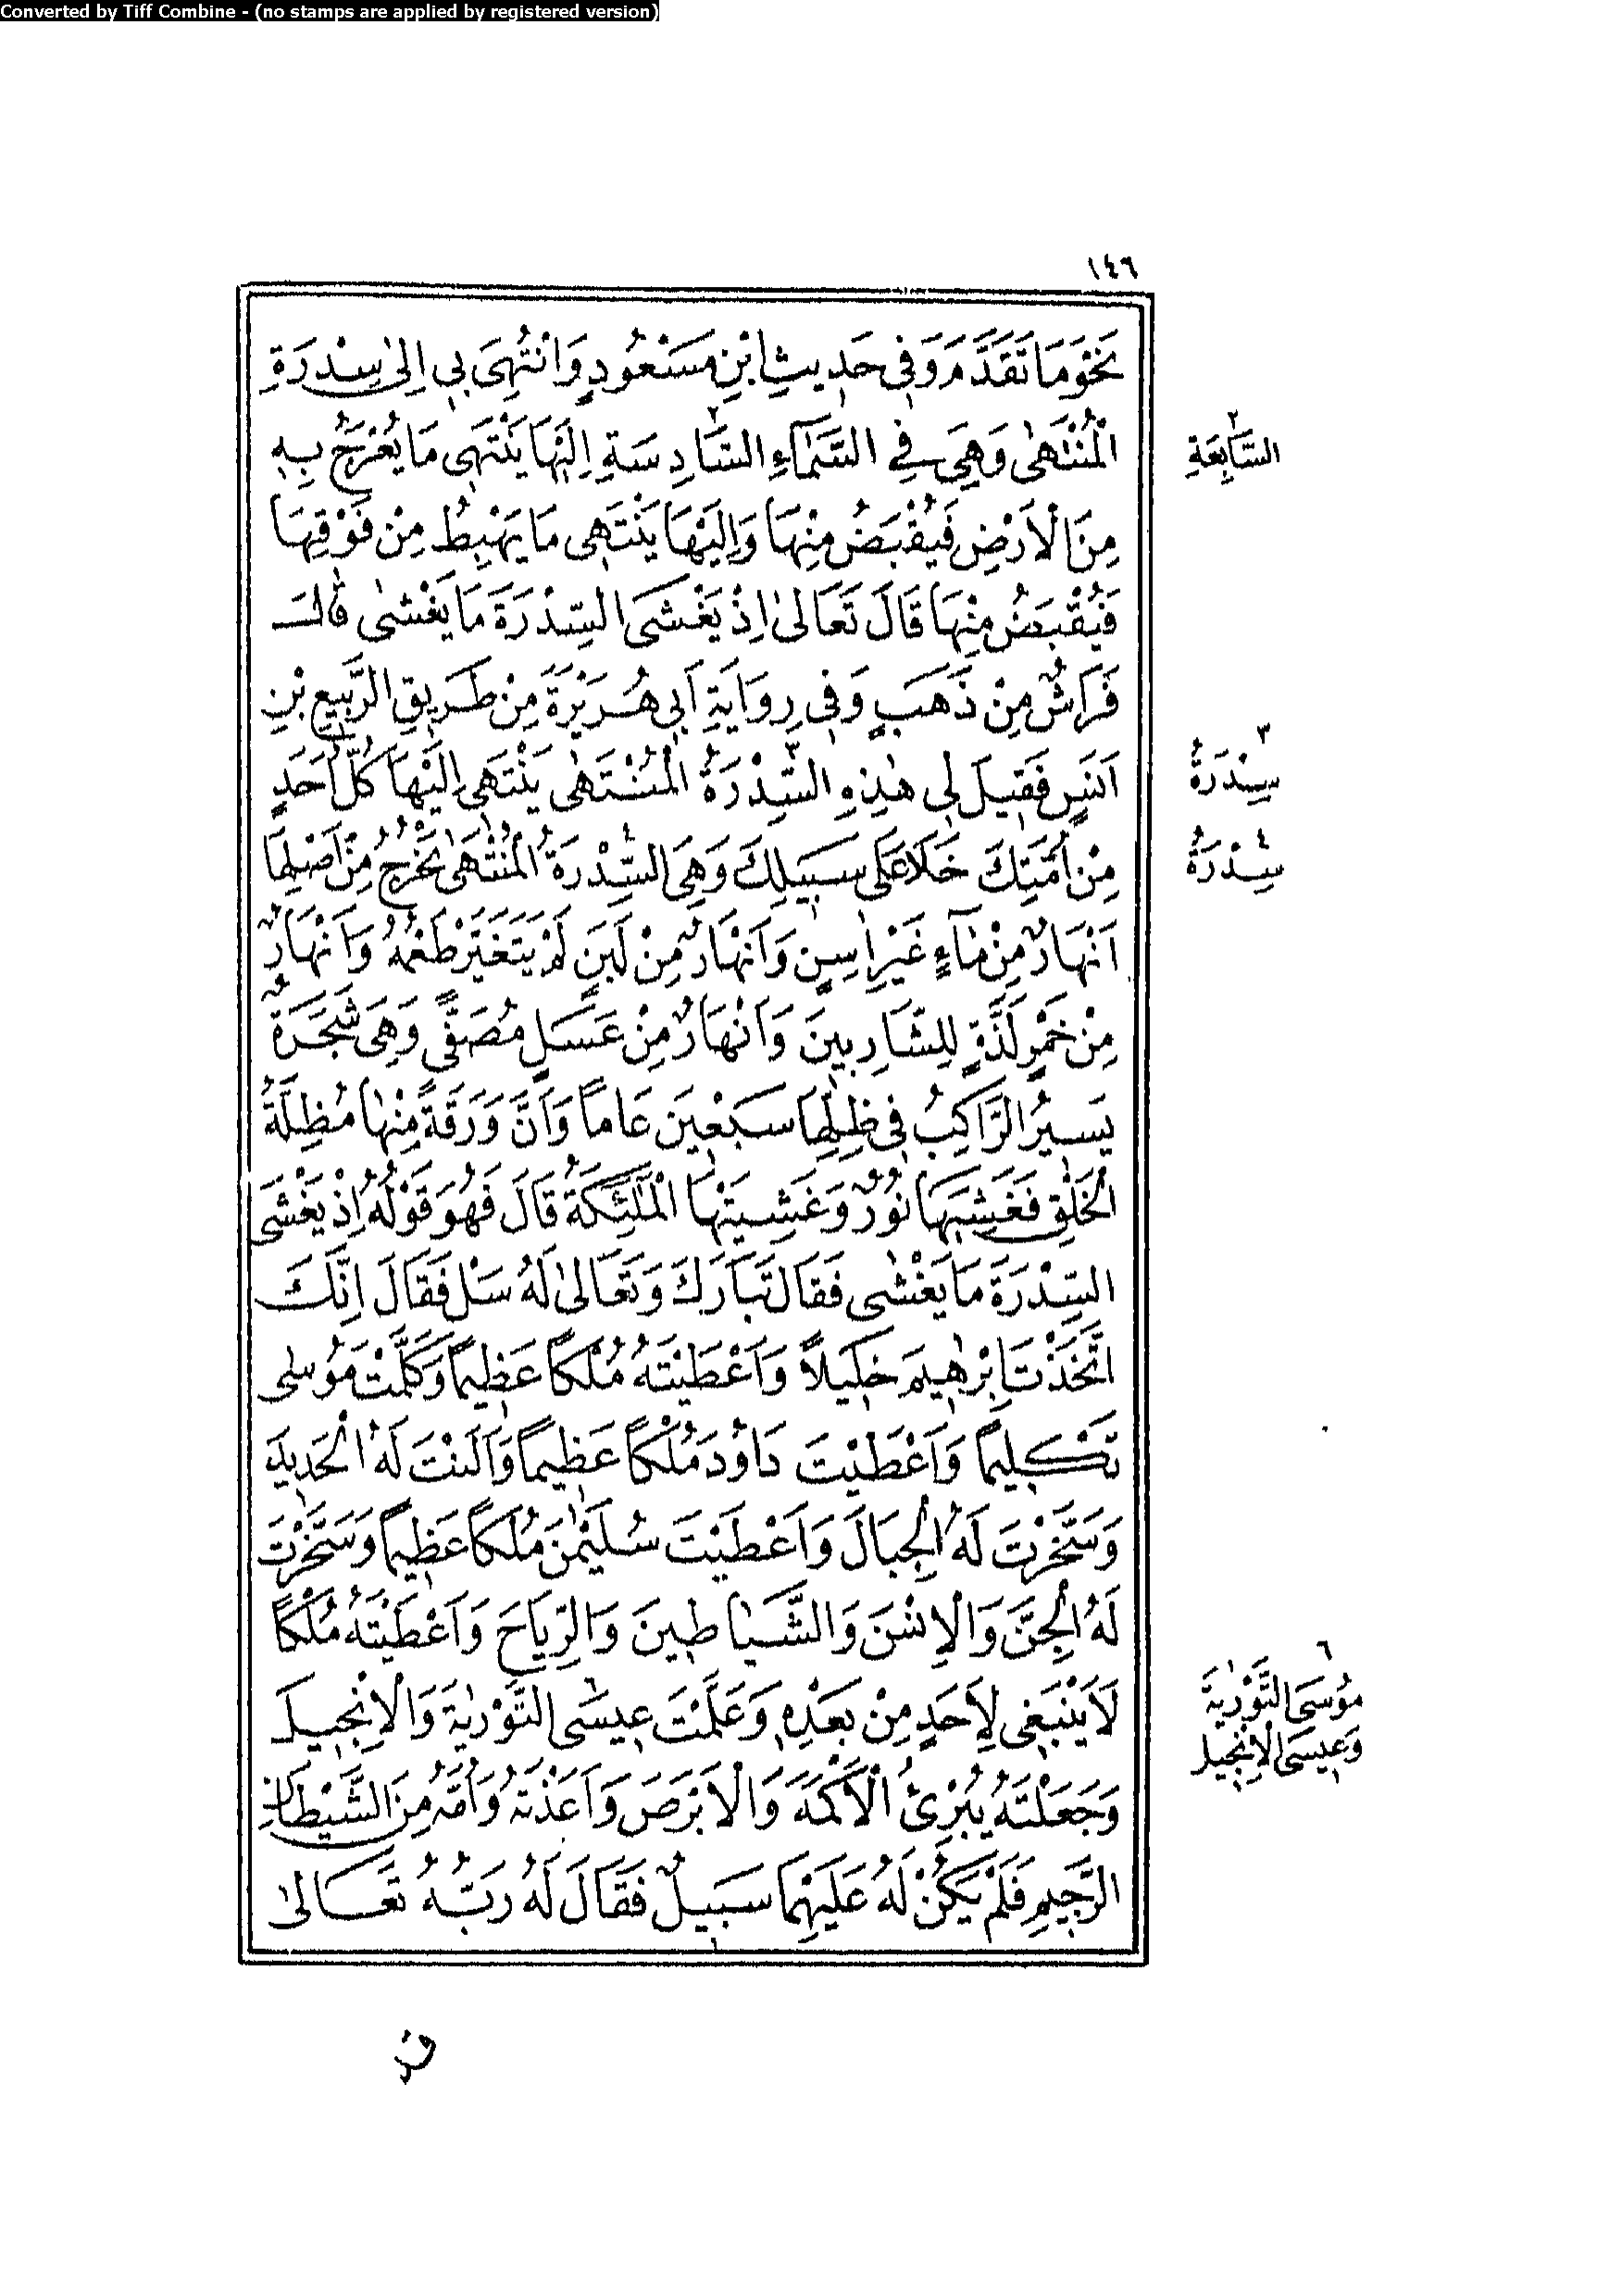 Converted by Tiff Combine - (no stamps are applied by registered version)
١٤٦
نَحْوَ مَا تَقَدَّمَ وَفِي حَدِيثِ ابْنِ مَسْعُودٍ وَانْتُهِيَ بِي اِلىٰ سِدْرَةِ
الْمُنْتَهٰى وَهِيَ فِي السَّمَآءِ السَّادِسَةِ ٢ اِلَيْهَا يَنْتَهِى مَا يُعْرَجُ بِهِ
مِنَ الْاَرْضِ فَيُقْبَضُ مِنْهَا وَاِلَيْهَا يَنْتَهِى مَا يَهْبِطُ مِنْ فَوْقِهَا
فَيُقْبَضُ مِنْهَا قَالَ تَعَالىٰ اِذْ يَغْشَى السِّدْرَةَ مَا يَغْشٰى قَالَ
فَرَاشٌ مِنْ ذَهَبٍ وَفِي رِوَايَةِ اَبِي هُرَيْرَةَ مِنْ طَرِيقِ الرَّبِيعِ بْنِ
اَنَسٍ فَقِيلَ لِي هٰذِهِ السِّدْرَةُ ٣ الْمُنْتَهٰى يَنْتَهِى اِلَيْهَا كُلُّ اَحَدٍ
مِنْ اُمَّتِكَ خَلَا عَلَى سَبِيلِكَ وَهِيَ السِّدْرَةُ ٤ الْمُنْتَهٰى يَخْرُجُ مِنْ اَصْلِهَا
اَنْهَارٌ مِنْ مَآءٍ غَيْرِ اٰسِنٍ وَاَنْهَارٌ مِنْ لَبَنٍ لَمْ يَتَغَيَّرْ طَعْمُهُ وَاَنْهَارٌ
مِنْ خَمْرٍ لَذَّةٍ لِلشَّارِبِينَ وَاَنْهَارٌ مِنْ عَسَلٍ مُصَفًّى وَهِيَ شَجَرَةٌ
يَسِيرُ الرَّاكِبُ فِي ظِلِّهَا سَبْعِينَ عَاماً وَاَنَّ وَرَقَةً مِنْهَا مُظِلَّةُ
الْخَلْقِ فَغَشِيَهَا نُورٌ وَغَشِيَتْهَا الْمَلٰئِكَةُ قَالَ فَهُوَ قَوْلُهُ اِذْ يَغْشَى
السِّدْرَةَ مَا يَغْشٰى فَقَالَ تَبَارَكَ وَتَعَالىٰ لَهُ سَلْ فَقَالَ اِنَّكَ
اتَّخَذْتَ اِبْرٰهِيمَ خَلِيلاً وَاَعْطَيْتَهُ مُلْكاً عَظِيماً وَكَلَّمْتَ مُوسٰى
تَكْلِيماً وَاَعْطَيْتَ دَاوُدَ مُلْكاً عَظِيماً وَاَلَنْتَ لَهُ الْحَدِيدَ
وَسَخَّرْتَ لَهُ الْجِبَالَ وَاَعْطَيْتَ سُلَيْمٰنَ مُلْكاً عَظِيماً وَسَخَّرْتَ
لَهُ الْجِنَّ وَالْاِنْسَ وَالشَّيَاطِينَ وَالرِّيَاحَ وَاَعْطَيْتَهُ مُلْكاً
لَا يَنْبَغِى لِاَحَدٍ مِنْ بَعْدِهِ وَعَلَّمْتَ عِيسَى ٦ التَّوْرٰيةَ وَالْاِنْجِيلَ
وَجَعَلْتَهُ يُبْرِئُ الْاَكْمَهَ وَالْاَبْرَصَ وَاَعَذْتَهُ وَاُمَّهُ مِنَ الشَّيْطَانِ
الرَّجِيمِ فَلَمْ يَكُنْ لَهُ عَلَيْهِمَا سَبِيلٌ فَقَالَ لَهُ رَبُّهُ تَعَالىٰ
٢
السَّابِعَةِ
٣
سِدْرَةُ
٤
سِدْرَةُ
٦
مُوسَى التَّوْرٰيةَ
وَعِيسَى الْاِنْجِيلَ